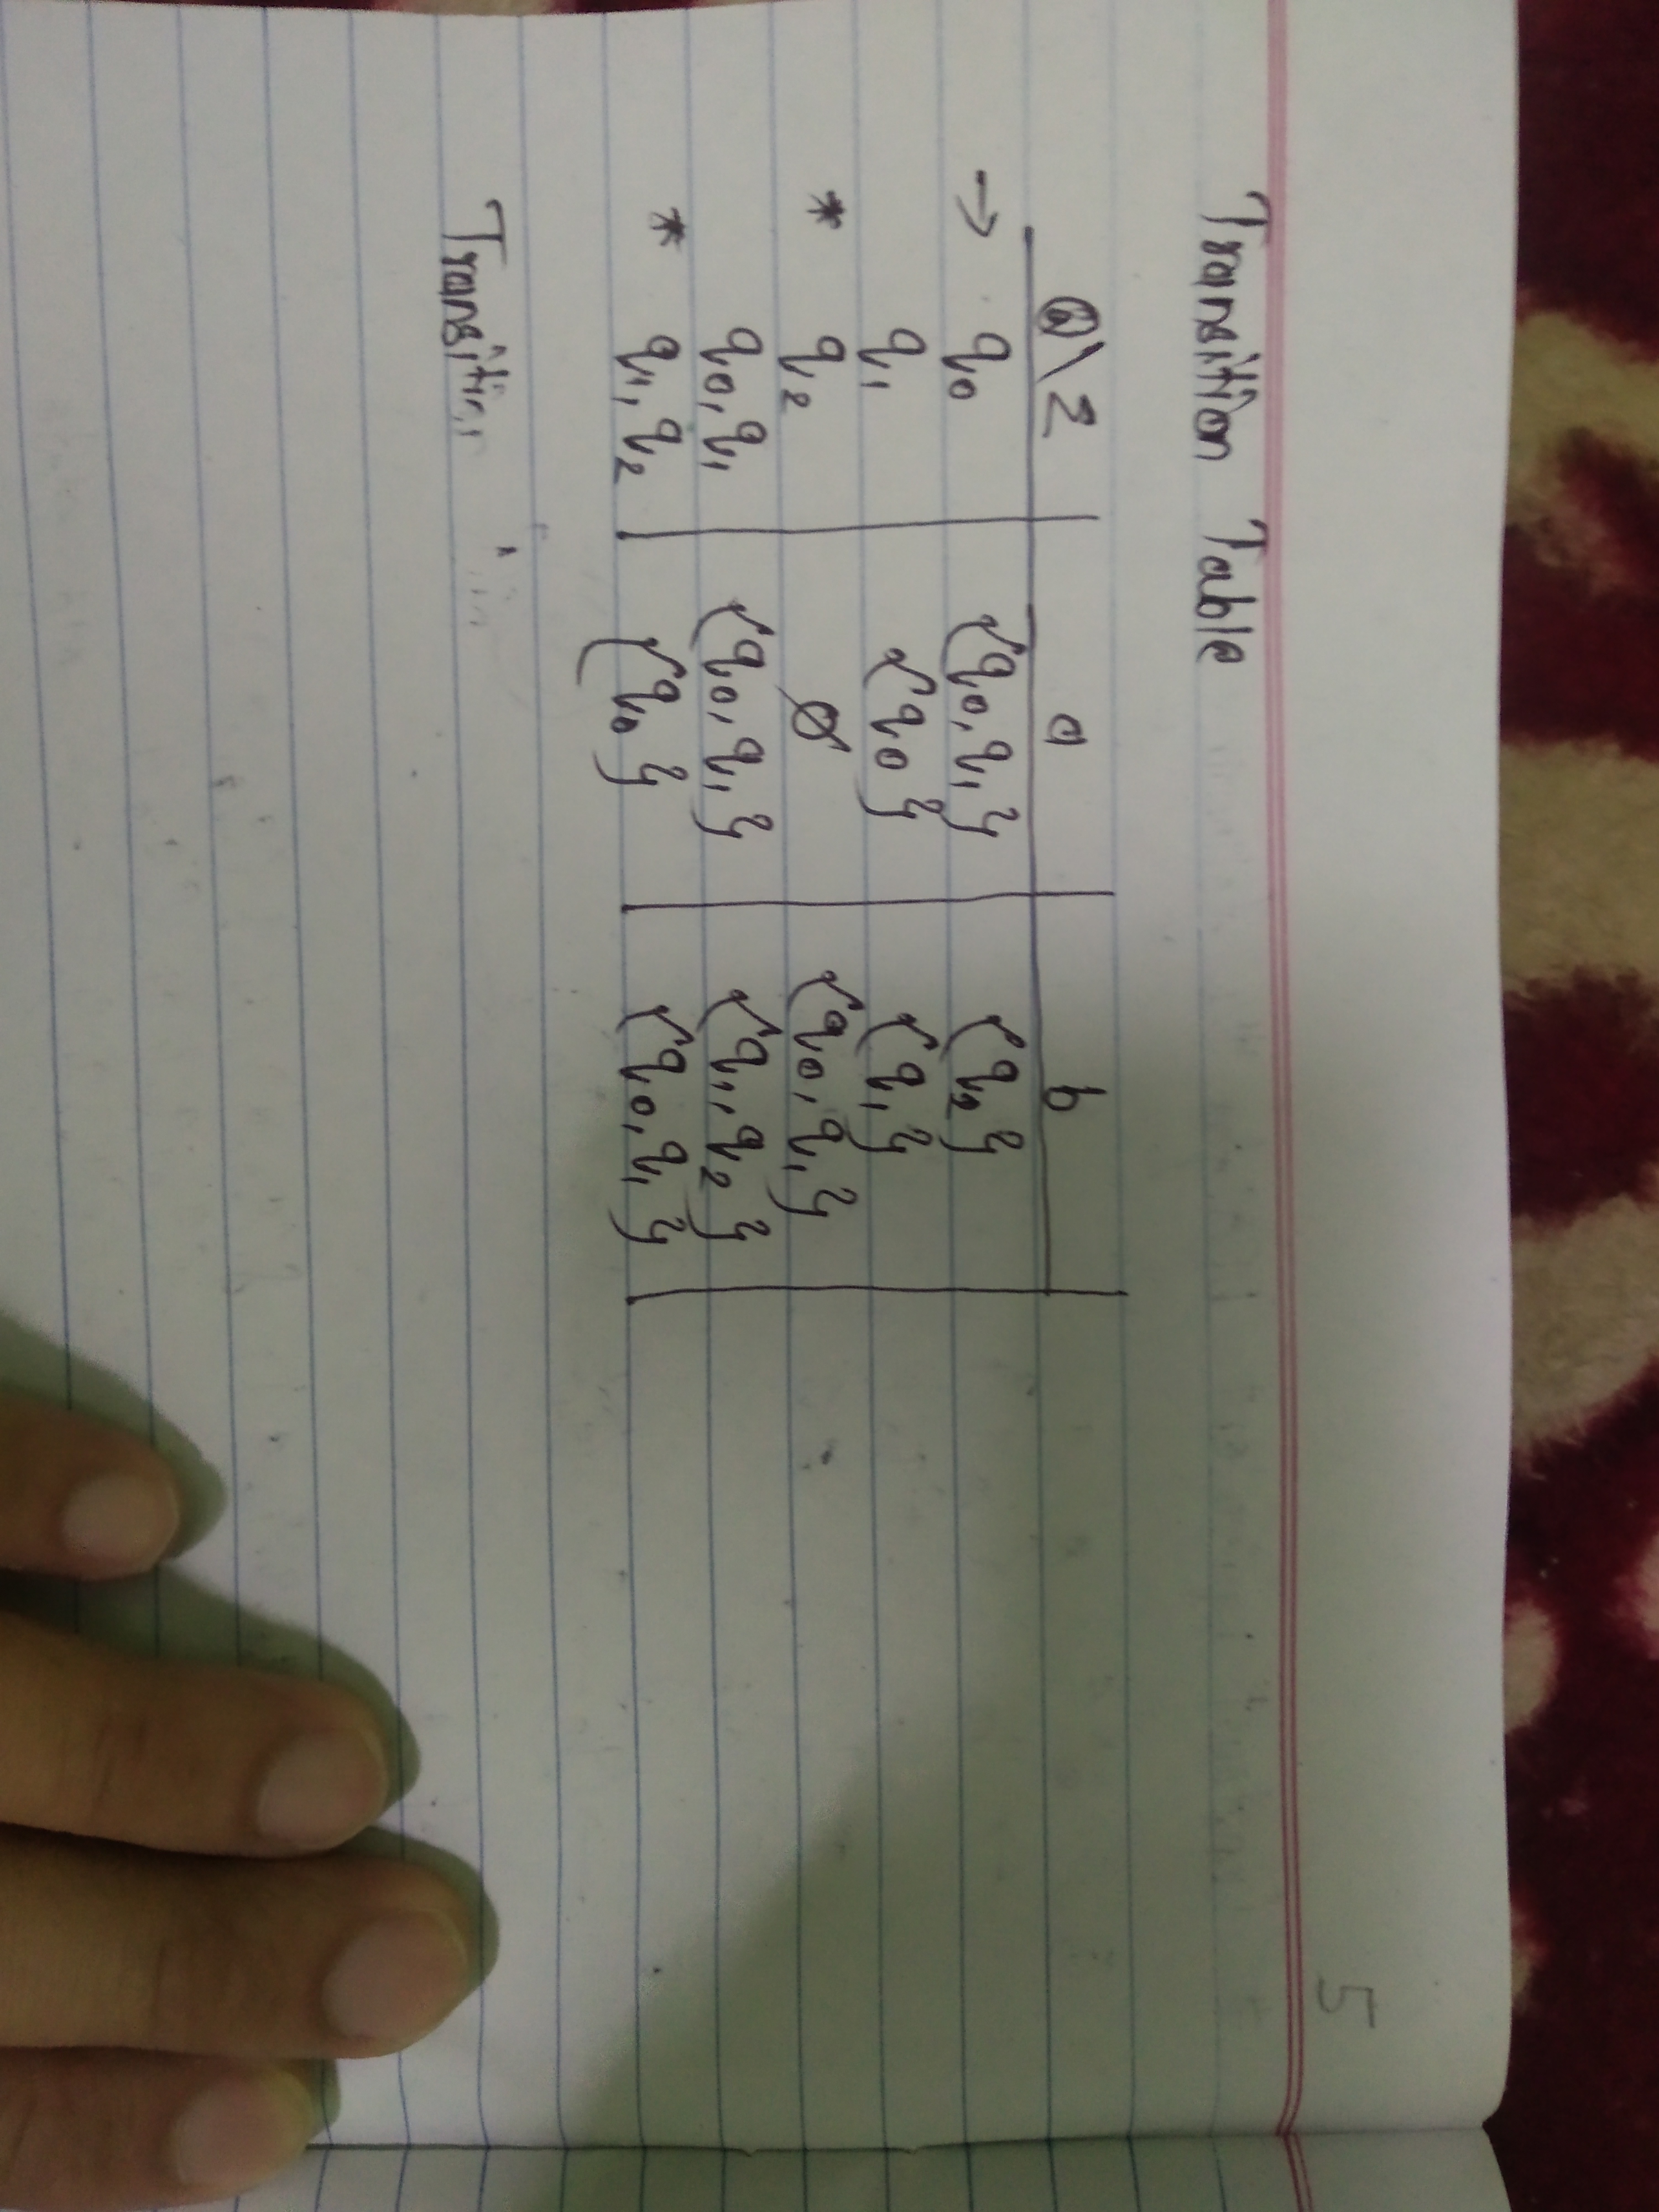 5
Transition Table
Q\Σ a b
→ q0 {q0,q1} {q2}
q1 {q0} {q1}
* q2 ∅ {q0,q1}
q0,q1 {q0,q1} {q1,q2}
* q1,q2 {q0} {q0,q1}
Transition